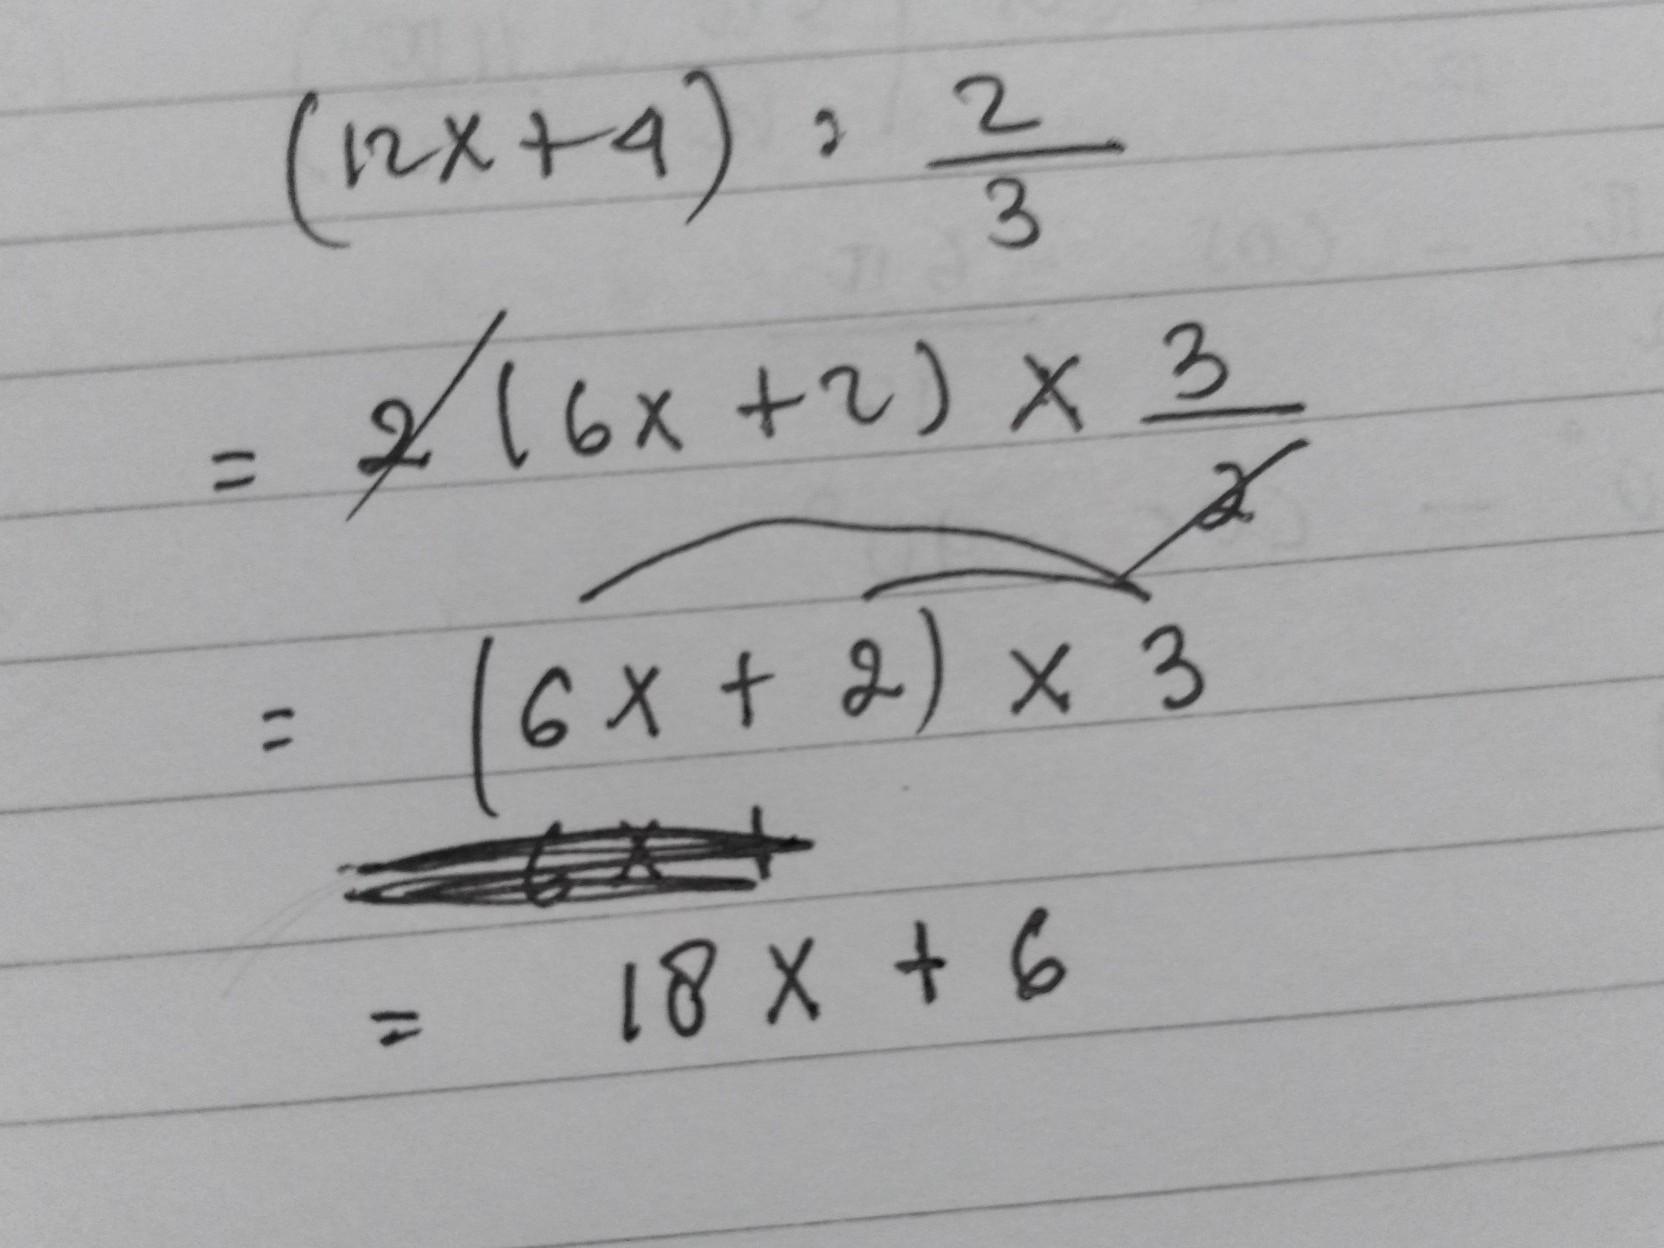 (12x+4) : 2/3
= 2(6x+2) × 3/2
= (6x+2) × 3
6x+
= 18x+6